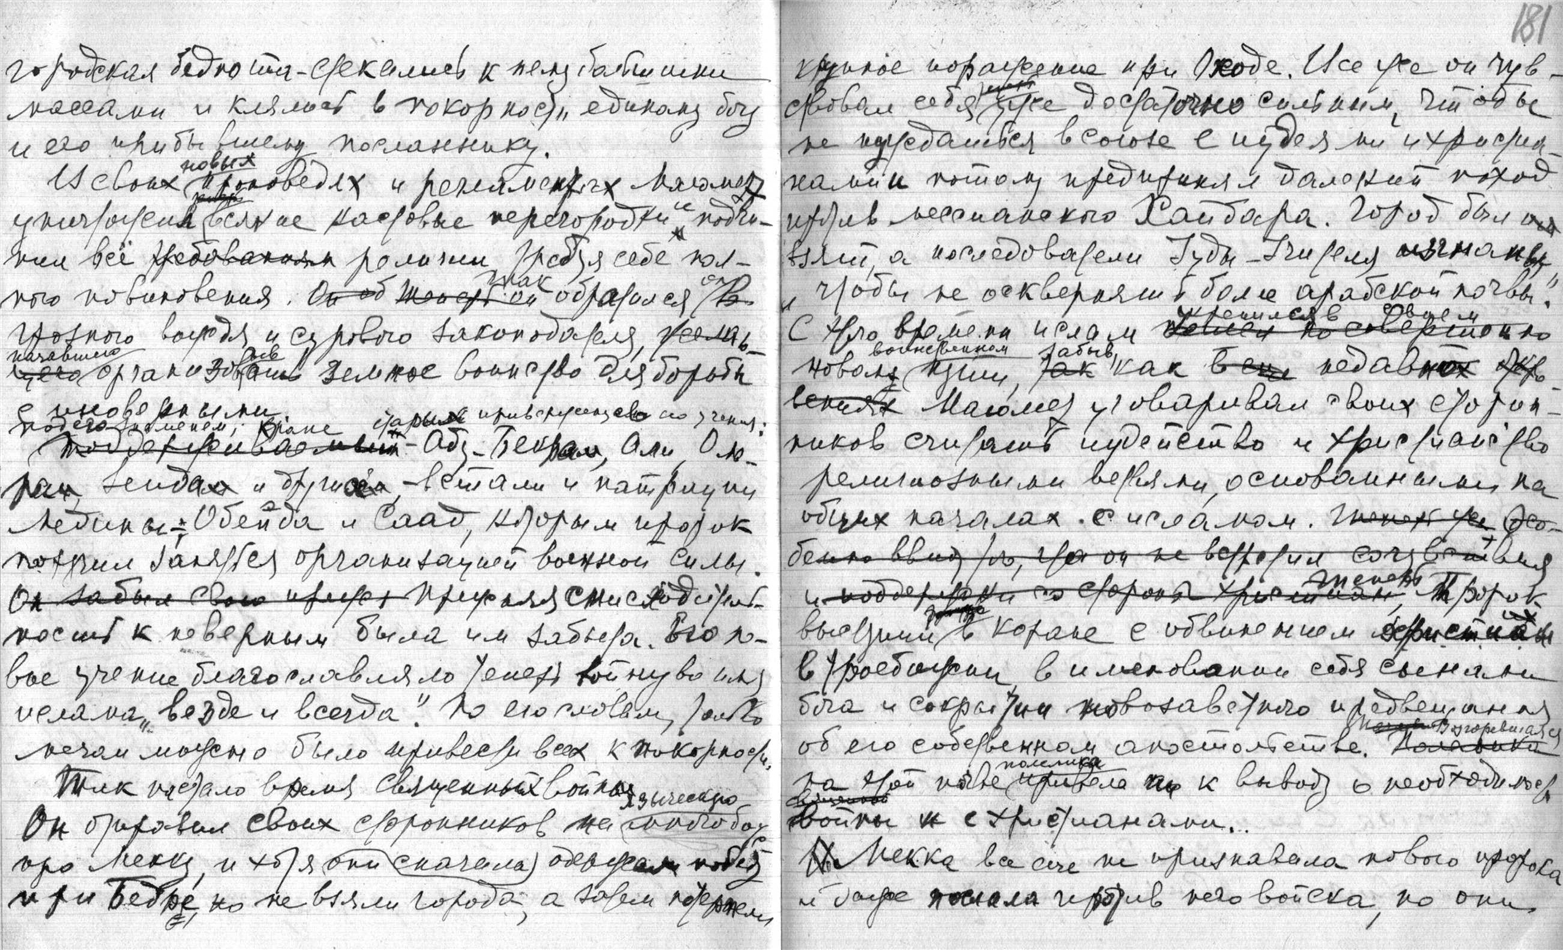 городская беднота - стекались к нему большими
массами и клялись в покорности „единому богу
и его прибывшему посланнику.
И в своих проповедях и регламентах Магомет
новых
уничтожил всякие кастовые перегородки и подчи-
нил всё требованиям религии требуя себе пол-
ного повиновения. Он об так он обратился в
грозного вождя и сурового законодателя,
начавшего организовывать земное воинство для борьбы
с иноверными.
под его знаменем, кроме старых приверженцев его учения:
Абу-Бекра, Али, Ом-
ра, Зеида и других, - встали и патриции
Медины: Обейда и Саад, которым пророк
поручил заняться организацией военной силы.
Он забыл свою прежн Прежняя снисходитель-
ность к неверным была им забыта. Его но-
вое учение благословляло теперь войну во имя
ислама „везде и всегда". По его словам, только
мечам можно было привести всех к покорности.
Так настало время священных войн.
Он отправил своих сторонников на языческую
про Мекку, и хотя они (сначала) одержали победу
при Бедре, но не взяли города, а затем потерпели
181
крупное поражение при Оходе. Все же он чув-
ствовал себя уже достаточно сильным, чтобы
не нуждаться в союзе с иудеями и христиа-
нами и потому предпринял далекий поход
против мессианского Хайбара. Город был
взят, а последователи Иуды-Учителя изгнаны,
„чтобы не осквернять более арабской почвы".
С этого времени ислам укрепился в совсем
новом воинственном пути, забыв, как в недавнох
Магомет уговаривал своих сторон-
ников считать иудейство и христианство
религиозными ветвями, основанными на
общих началах с исламом. Теперь же Осо-
бенно ввиду того, что он не встретил сочувствия
и поддержки со стороны христиан Теперь Пророк
выступил в Коране с обвинением их
в троебожии, в именовании себя сынами
бога и сокрытии новозаветного предвещания
об его собственном апостольстве. Возгоревшаяся
на этой почве полемика привела к выводу о необходимости
войны и с христианами...
Мекка все еще не признавала нового пророка
и даже послала против него войска, но они